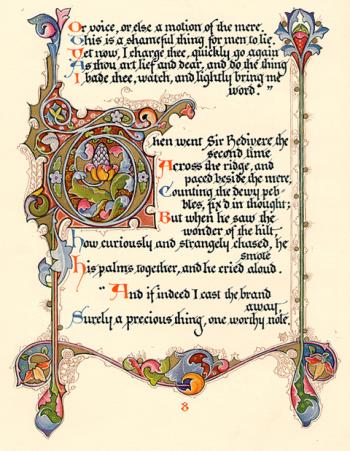 Or voice, or else a motion of the mere.
This is a shameful thing for men to lie.
Yet now, I charge thee, quickly go again
As thou art lief and dear, and do the thing
I bade thee, watch, and lightly bring me
word."
Then went Sir Bedivere the
second time
Across the ridge, and
paced beside the mere,
Counting the dewy peb-
bles, fix'd in thought;
But when he saw the
wonder of the hilt,
How curiously and strangely chased, he
smote
His palms together, and he cried aloud.
"And if indeed I cast the brand
away,
Surely a precious thing, one worthy note,
8